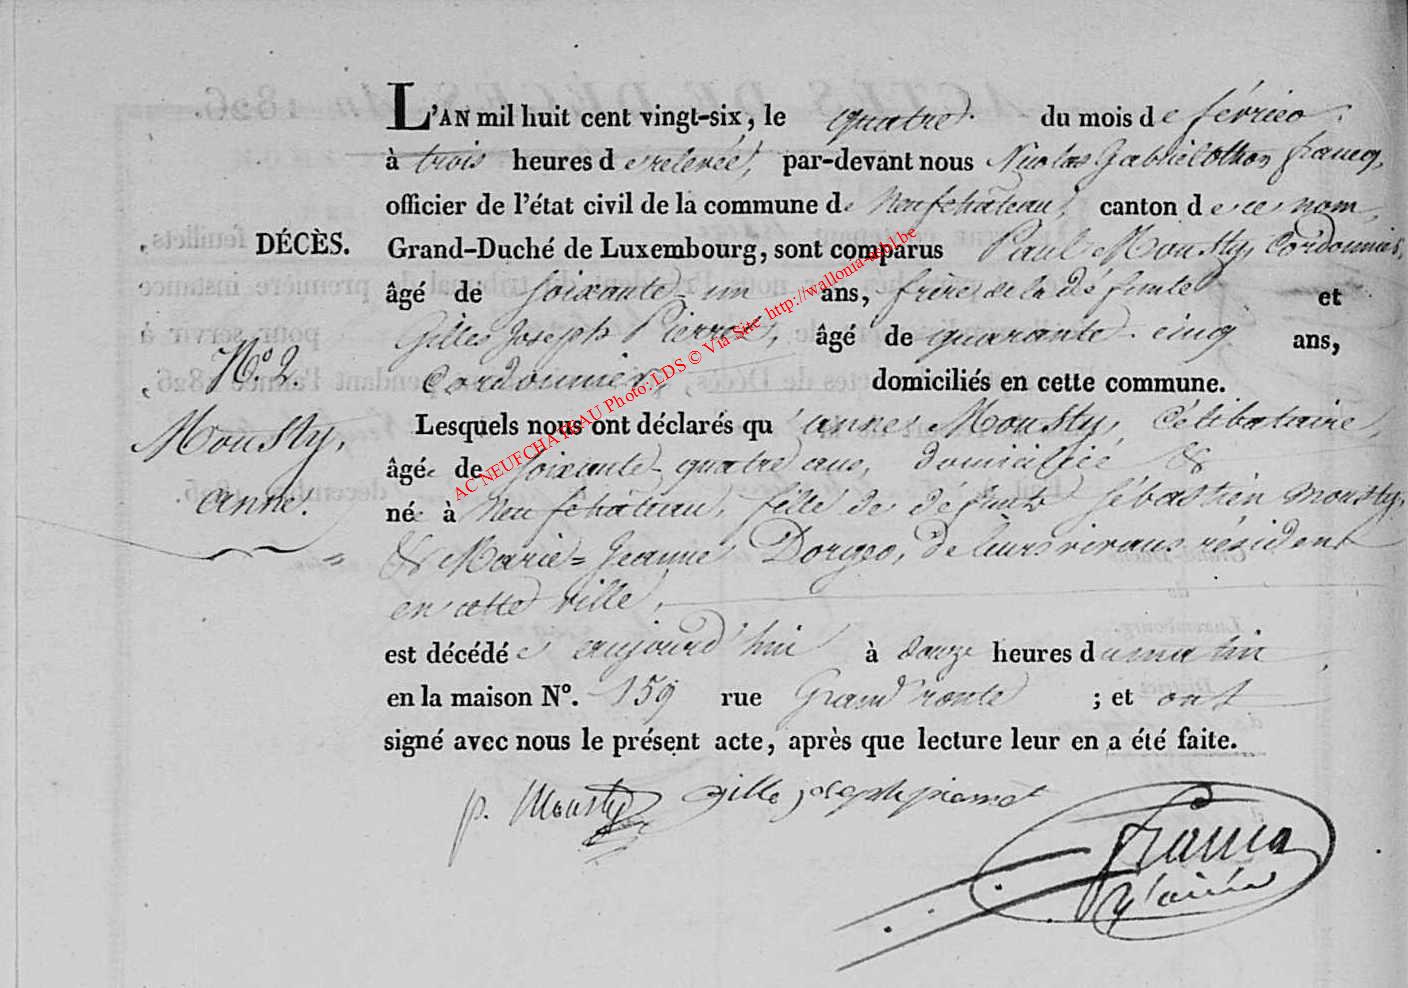 L'AN mil huit cent vingt-six, le quatre du mois de février
à trois heures de relevée, par-devant nous Nicolas Gabriel Othon francq,
officier de l'état civil de la commune de Neufchâteau, canton de ce nom,
DÉCÈS.
Grand-Duché de Luxembourg, sont comparus Paul Mousty, Cordonnier,
âgé de soixante-un ans, frère de la défunte et
Gilles Joseph Pierret, âgé de quarante-cinq ans,
N.º 2.
Cordonnier, domiciliés en cette commune.
Mousty,
Anne.
Lesquels nous ont déclarés qu'anne Mousty, Célibataire,
âgée de soixante-quatre ans, domiciliée &
née à Neufchâteau, fille de défunts Sébastien Mousty,
& Marie=Jeanne de leurs vivans résident
en cette ville,
est décédée aujourd'hui à douze heures du matin,
en la maison Nº. 159 rue Grand'route ; et ont
signé avec nous le présent acte, après que lecture leur en a été faite.
p. Mousty gille joseph pierret
francq
AC NEUFCHATEAU Photo: LDS © Via Site http://wallonia-asbl.be